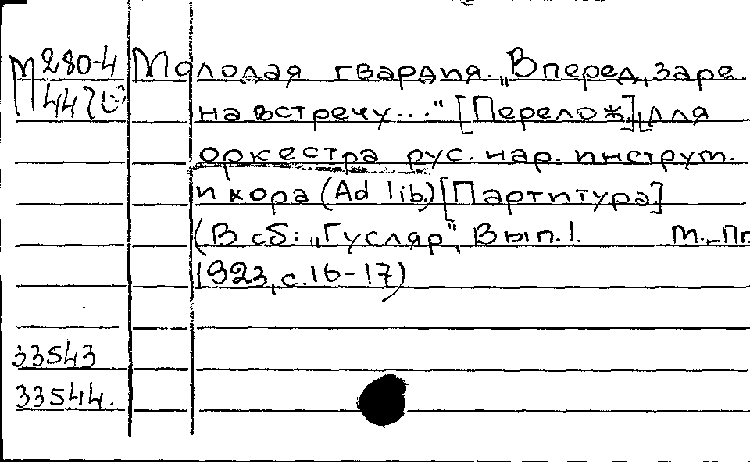 М 280-4 Молодая гвардия. „Вперед, заре
на встречу..." [Перелож.] для
оркестра рус. нар. инструм.
и хора (Ad lib.) [Партитура]
(В сб: „Гусляр", Вып. 1. М.-Пг
1923, с. 16-17)
33543
33544.